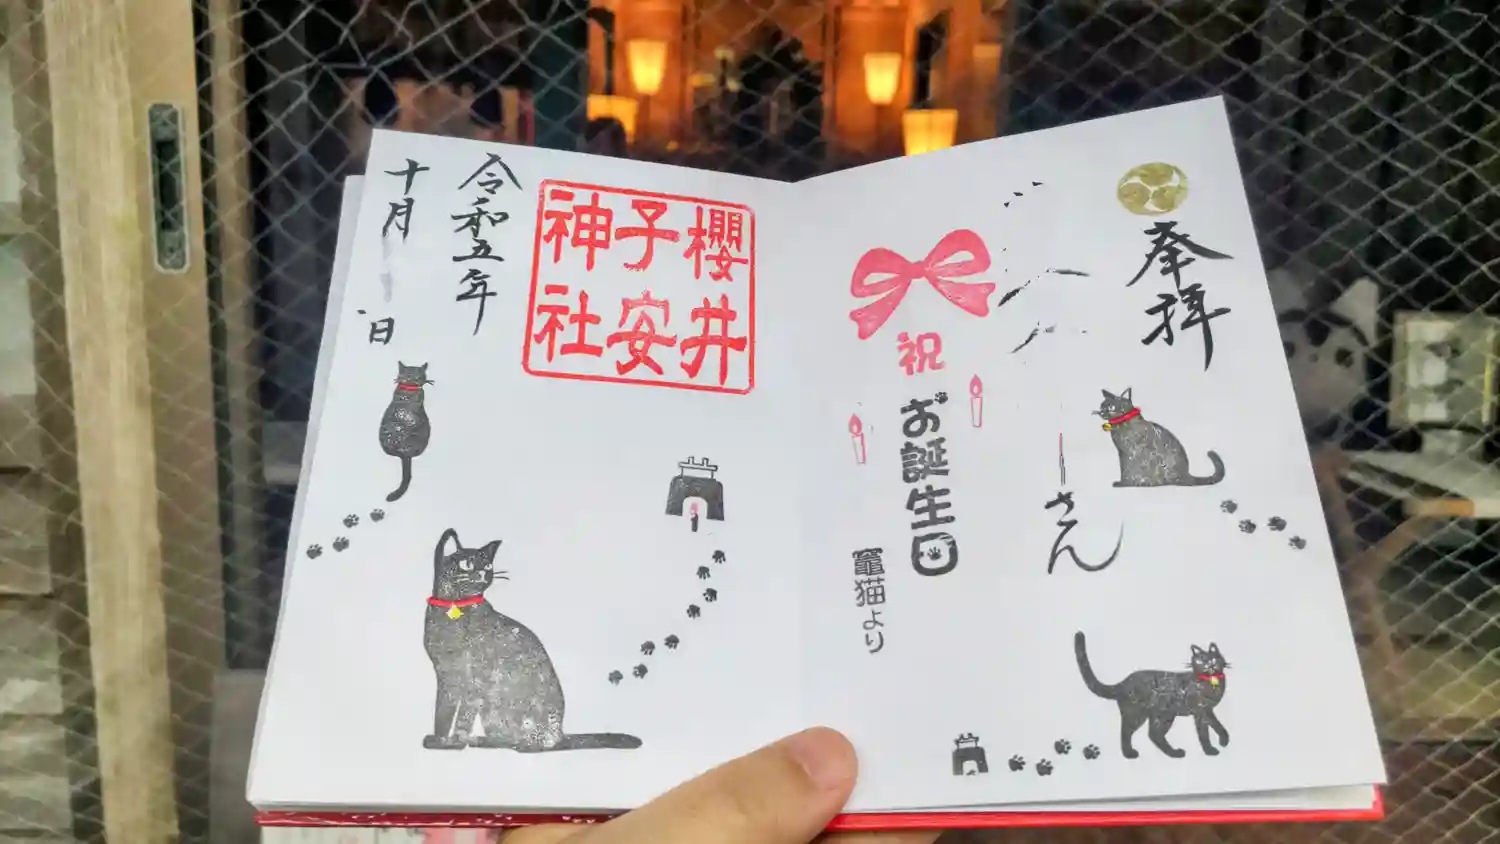 奉拝
さん
祝
お誕生日
竈猫より
櫻井
子安
神社
令和五年
十月 日